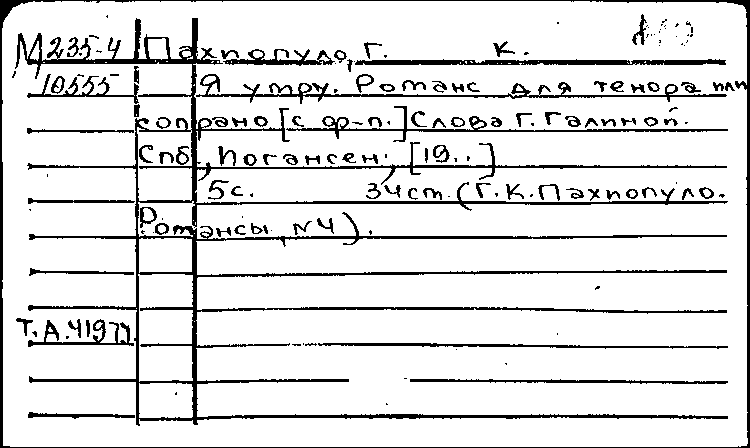 М 235-4 Пахпопуло, Г. К.
10555 Я умру. Романс для тенора или
сопрано [с ф-п.] Слова Г. Галиной.
Спб., Иогансен, [19..]
5 с. 34 ст. (Г.К. Пахпопуло.
Романсы, N4).